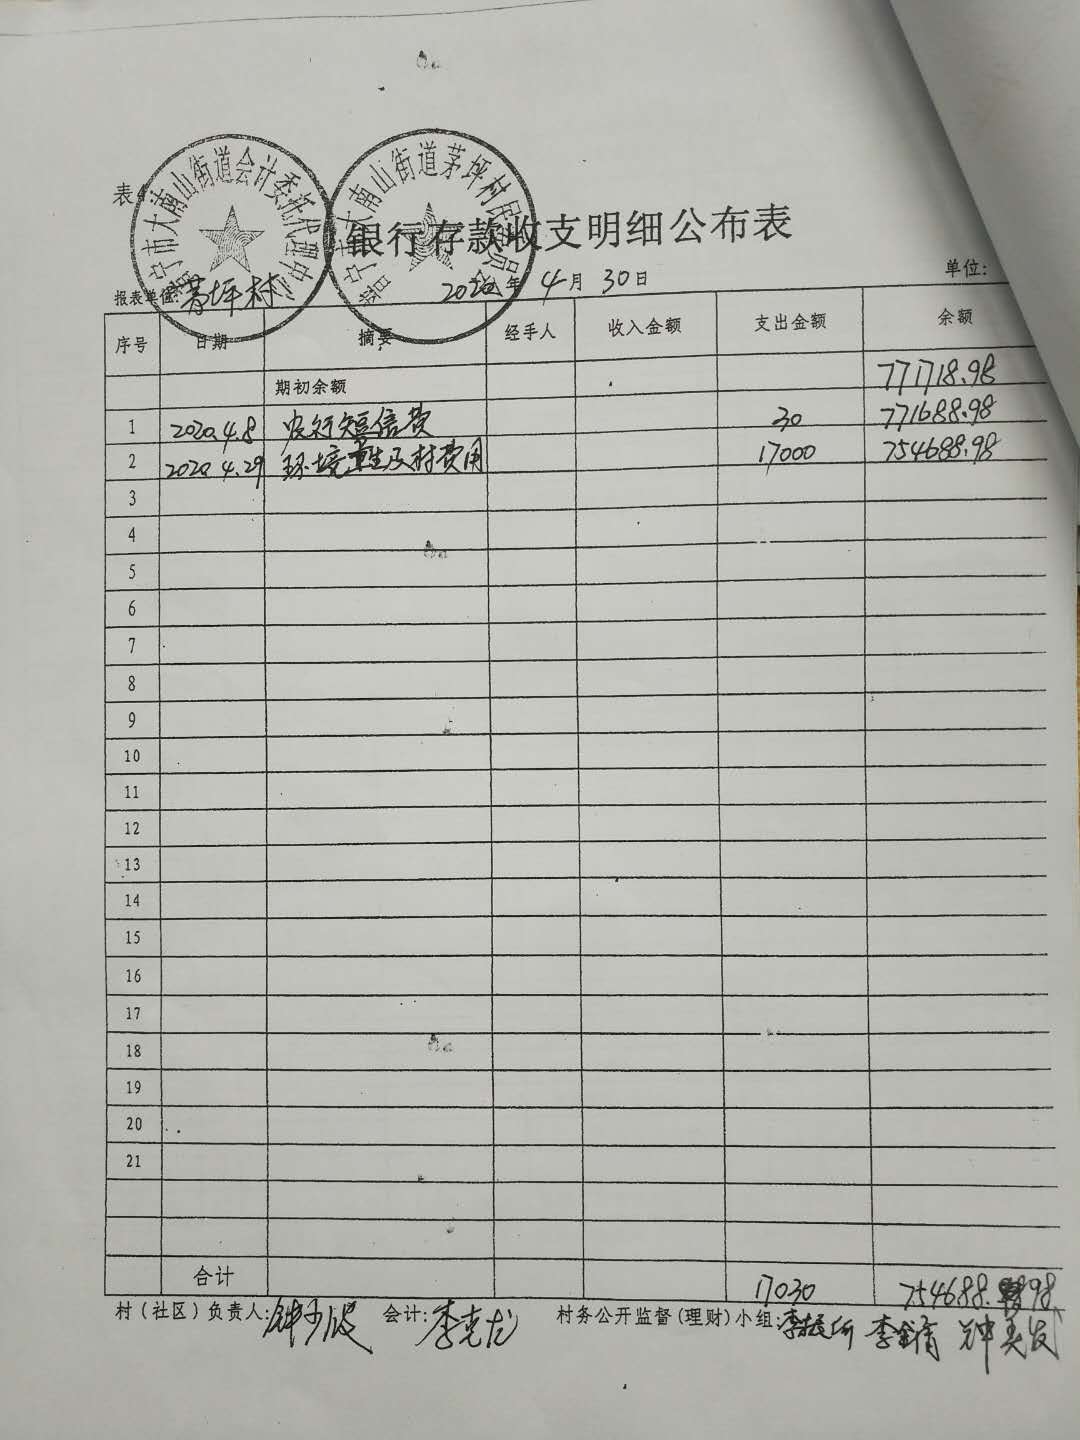 大南山街道会计委托代理中心
大南山街道茅坪村民
表4
银行存款收支明细公布表
报表单位:茅坪村 2020年 4月 30日 单位:
序号 日期 摘要 经手人 收入金额 支出金额 余额
期初余额 771718.98
1 2020.4.8 农行短信费 30 771688.98
2 2020.4.29 环境卫生及村费用 17000 754688.98
3
4
5
6
7
8
9
10
11
12
13
14
15
16
17
18
19
20
21
合计 17030 754688.98
村(社区)负责人: 会计:李克龙 村务公开监督(理财)小组: